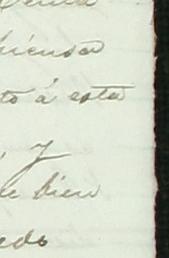 piensa
to á esta
y
e bien
edo